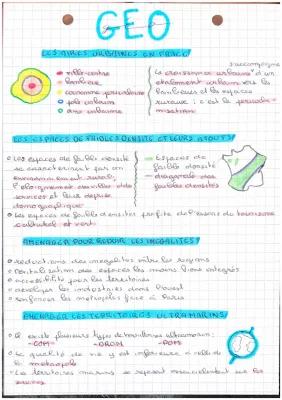 GEO
LES AIRES URBAINES EN FRACE
ville-centre
banlieue
couronne périurbaine
pole urbain
aire urbaine
s'accompagne
La croissance urbaine d'un
étalement urbain vers les
banlieues et les espaces
ruraux : c'est la périurba-
nisation
LES ESPACES DE FAIBLES DENSITE ET LEURS ATOUTS
Les espaces de faible densité
se caractérisent par un
environnement rural,
l'éloignement des villes des
services et leur déprise
démographique
Espaces de
faible densité
diagonale des
faibles densités
Les espaces de faibles densités profite de l'essor du tourisme
culturel et vert
AMENAGER POUR REDUIR LES INEGALITES
réductions des inégalités entre les régions
des espaces les moins bien intégrés
accessibilité pour les territoires
développer les industries dans l'ouest
renforcer les métropoles face à Paris
AMENAGER LES TERRITOIRES ULTRAMARINS
Il existe plusieurs types de territoires ultramarin :
-COM- -DROM- -POM-
La qualité de vie y est inférieure à celle de
la métropole
Les territoires marins se reposent essentiellement sur les